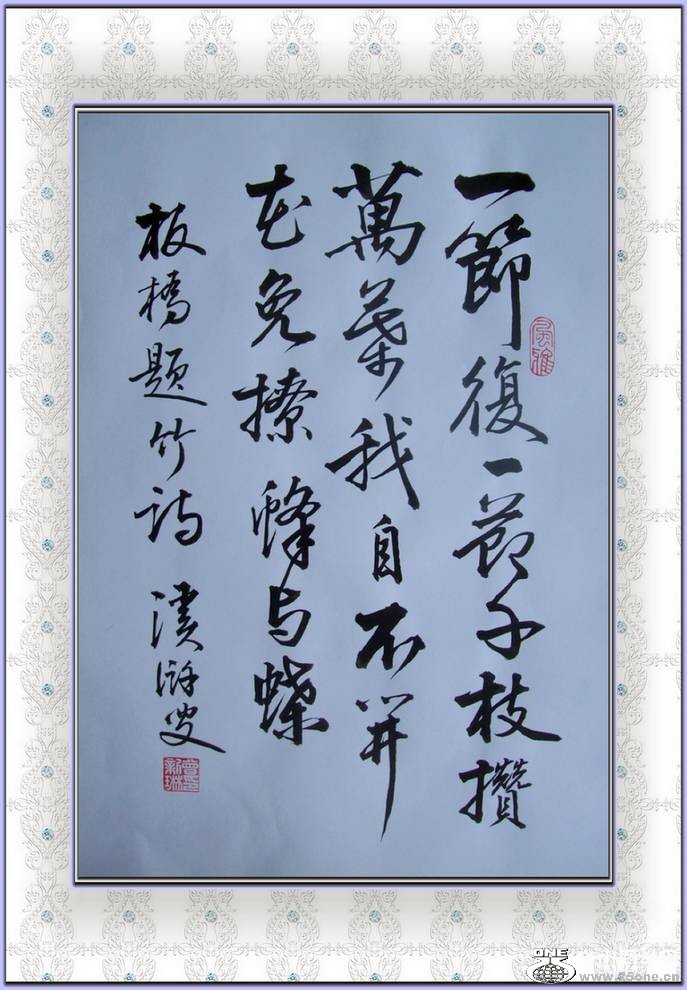 一節復一節千枝攢
萬葉我自不開
花免撩蜂与蝶
板橋題竹詩 溪叟
風雅
ONE
www.35one.cn